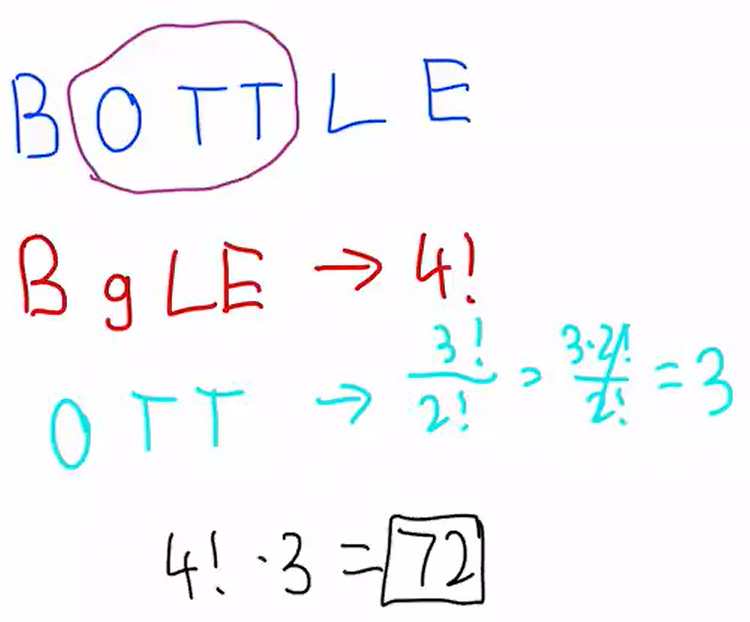 BOTTLE
B g L E → 4!
O T T → 3!/2! = 3·2!/2! = 3
4! · 3 = 72